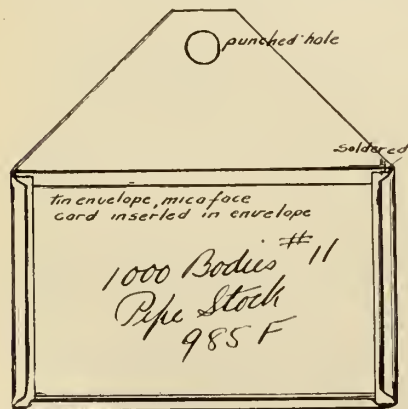 punched hole
soldered
tin envelope, mica face
card inserted in envelope
1000 Bodies #11
Pipe Stock
985 F